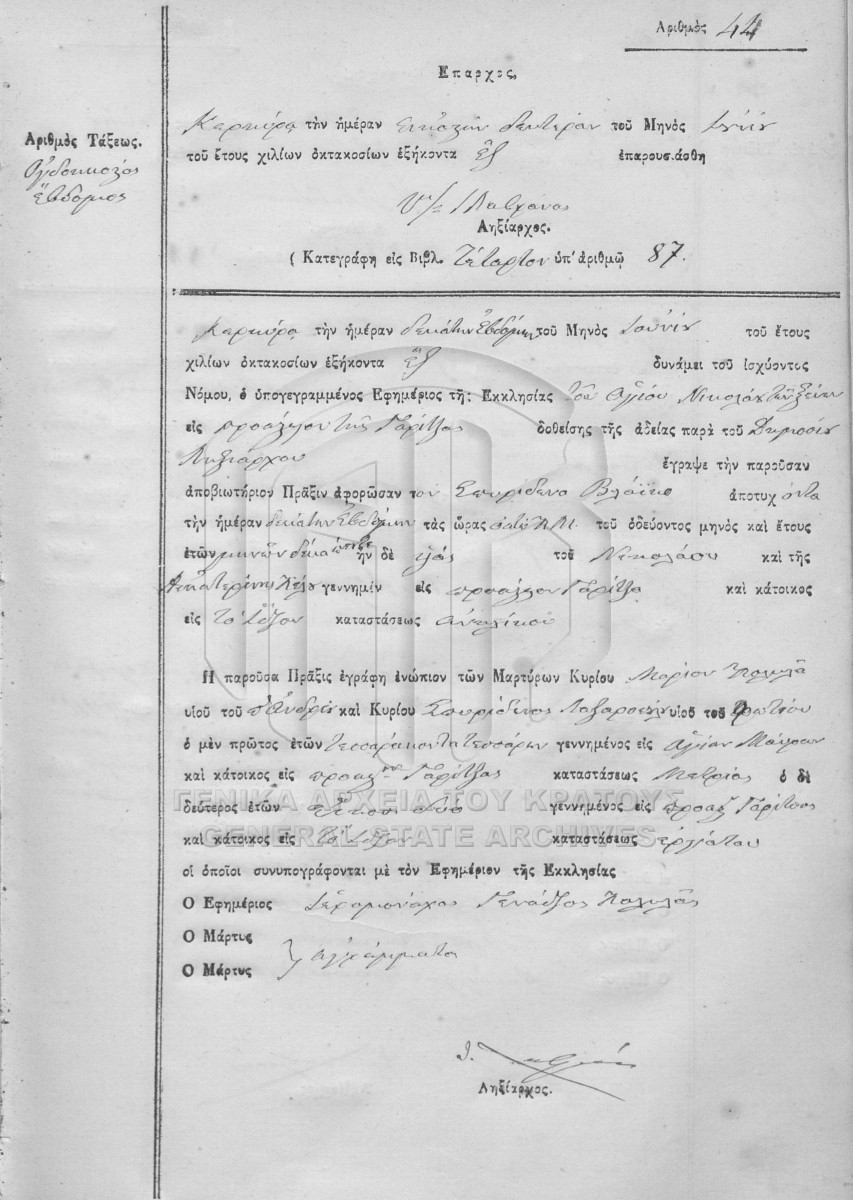 Αριθμὸς 44
Επαρχος,
Αριθμὸς Τάξεως.
Ὀγδοηκοστὸς
ἕβδομος
Κερκύρα τὴν ἡμέραν εικοστὴν δευτέραν τοῦ Μηνὸς Ιουνίου
τοῦ έτους χιλίων ὀκτακοσίων ἑξήκοντα ἕξ ἐπαρουσιάσθη
Ληξίαρχος.
( Κατεγράφη εἰς Βιβλ. Τέταρτον ὑπ' ἀριθμῷ 87.
Κερκύρα τὴν ἡμέραν δεκάτην Ἑβδόμην τοῦ Μηνὸς Ιουνίου τοῦ έτους
χιλίων ὀκτακοσίων ἑξήκοντα ἕξ δυνάμει τοῦ ἰσχύοντος
Νόμου, ὁ ὑπογεγραμμένος Εφημέριος τῆς Εκκλησίας τοῦ Ἁγίου Νικολάου τῶν Ξένων
εἰς προάστιον τῆς Γαρίτζας δοθείσης τῆς ἀδείας παρὰ τοῦ Δημοσίου
Ληξιάρχου ἔγραψε τὴν παροῦσαν
ἀποβιωτήριον Πρᾶξιν ἀφορῶσαν τον Σπυρίδωνα Βλάϊκο ἀποτυχόντα
τὴν ἡμέραν δεκάτην Ἑβδόμην τὰς ὥρας Α.Μ. τοῦ ὁδεύοντος μηνὸς καὶ ἔτους
ἐτῶν μηνῶν δέκα ἦν δὲ υἱὸς τοῦ Νικολάου καὶ τῆς
Αἰκατερίνης γεννημέν εἰς προάστιον Γαρίτζα καὶ κάτοικος
εἰς τὸ ἴδιον καταστάσεως ἀνηλίκου
Η παροῦσα Πρᾶξις ἐγράφη ἐνώπιον τῶν Μαρτύρων Κυρίου
υἱοῦ τοῦ Ἀνδρέου καὶ Κυρίου Σπυρίδωνος υἱοῦ τοῦ Φωτίου
ὁ μὲν πρῶτος ἐτῶν τεσσαράκοντα τεσσάρων γεννημένος εἰς Ἁγίαν Μαύραν
καὶ κάτοικος εἰς προάστ Γαρίτζας καταστάσεως ὁ δὲ
δεύτερος ἐτῶν εἴκοσι δύο γεννημένος εἰς προάστ Γαρίτζας
καὶ κάτοικος εἰς τὸ ἴδιον καταστάσεως ἐργάτου
οἱ ὁποῖοι συνυπογράφονται μὲ τὸν Εφημέριον τῆς Εκκλησίας
Ο Εφημέριος Ἱερομόναχος
Ο Μάρτυς
Ο Μάρτυς ἀγράμματοι
Ληξίαρχος.
ΓΕΝΙΚΑ ΑΡΧΕΙΑ ΤΟΥ ΚΡΑΤΟΥΣ
GENERAL STATE ARCHIVES